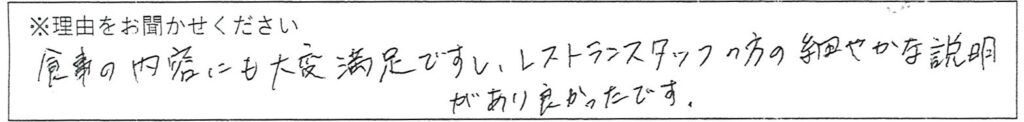 ※理由をお聞かせください
食事の内容にも大変満足ですし、レストランスタッフの方の細やかな説明
があり良かったです。